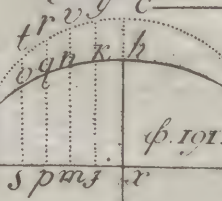 t r v y c
o q n k h
p. 191.
s p m z x